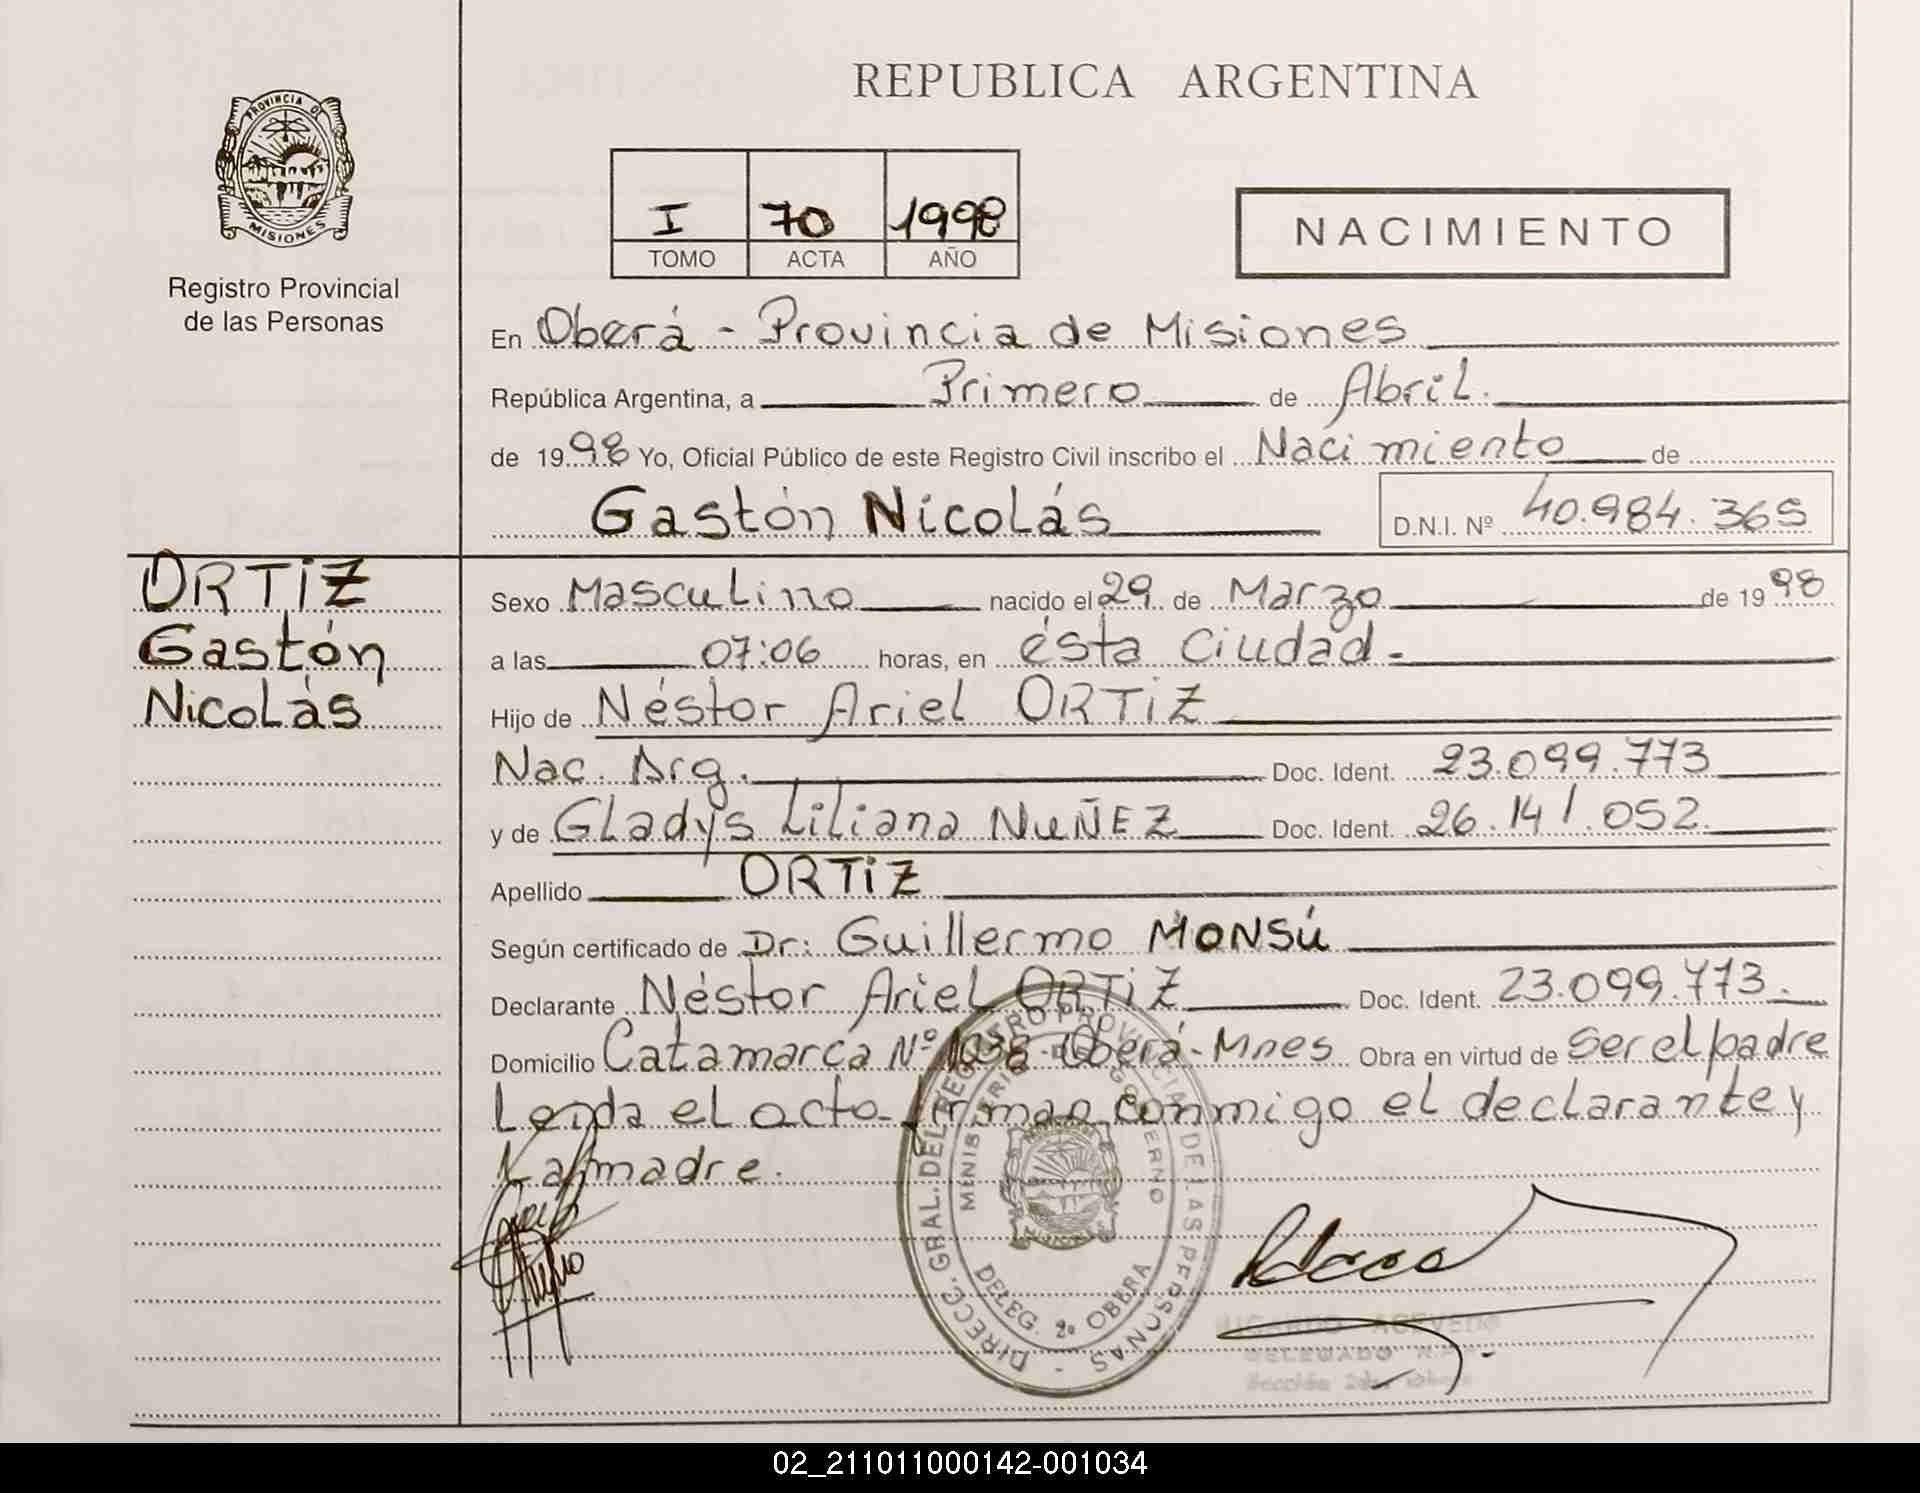 REPUBLICA ARGENTINA
PROVINCIA DE
MISIONES
Registro Provincial
de las Personas
I 70 1998
TOMO ACTA AÑO
NACIMIENTO
En Oberá - Provincia de Misiones
República Argentina, a Primero de Abril.
de 1998 Yo, Oficial Público de este Registro Civil inscribo el Nacimiento de
Gastón Nicolás D.N.I. Nº 40.984.365
ORTIZ
Gastón
Nicolás
Sexo Masculino nacido el 29 de Marzo de 1998
a las 07:06 horas, en ésta Ciudad.
Hijo de Néstor Ariel ORTIZ
Nac. Arg. Doc. Ident. 23.099.773
y de Gladys Liliana NUÑEZ Doc. Ident. 26.141.052.
Apellido ORTIZ
Según certificado de Dr: Guillermo MONSÚ
Declarante Néstor Ariel ORTIZ Doc. Ident. 23.099.773.
Domicilio Catamarca Nº 1038 - Oberá - Mnes Obra en virtud de ser el padre
Leida el acta firman conmigo el declarante y
La madre.
DIRECC. GRAL. DEL REGISTRO PROVINCIAL DE LAS PERSONAS -
MINISTERIO DE GOBIERNO
DELEG. 2º OBERA
RICARDO ACEVEDO
DELEGADO
02_211011000142-001034